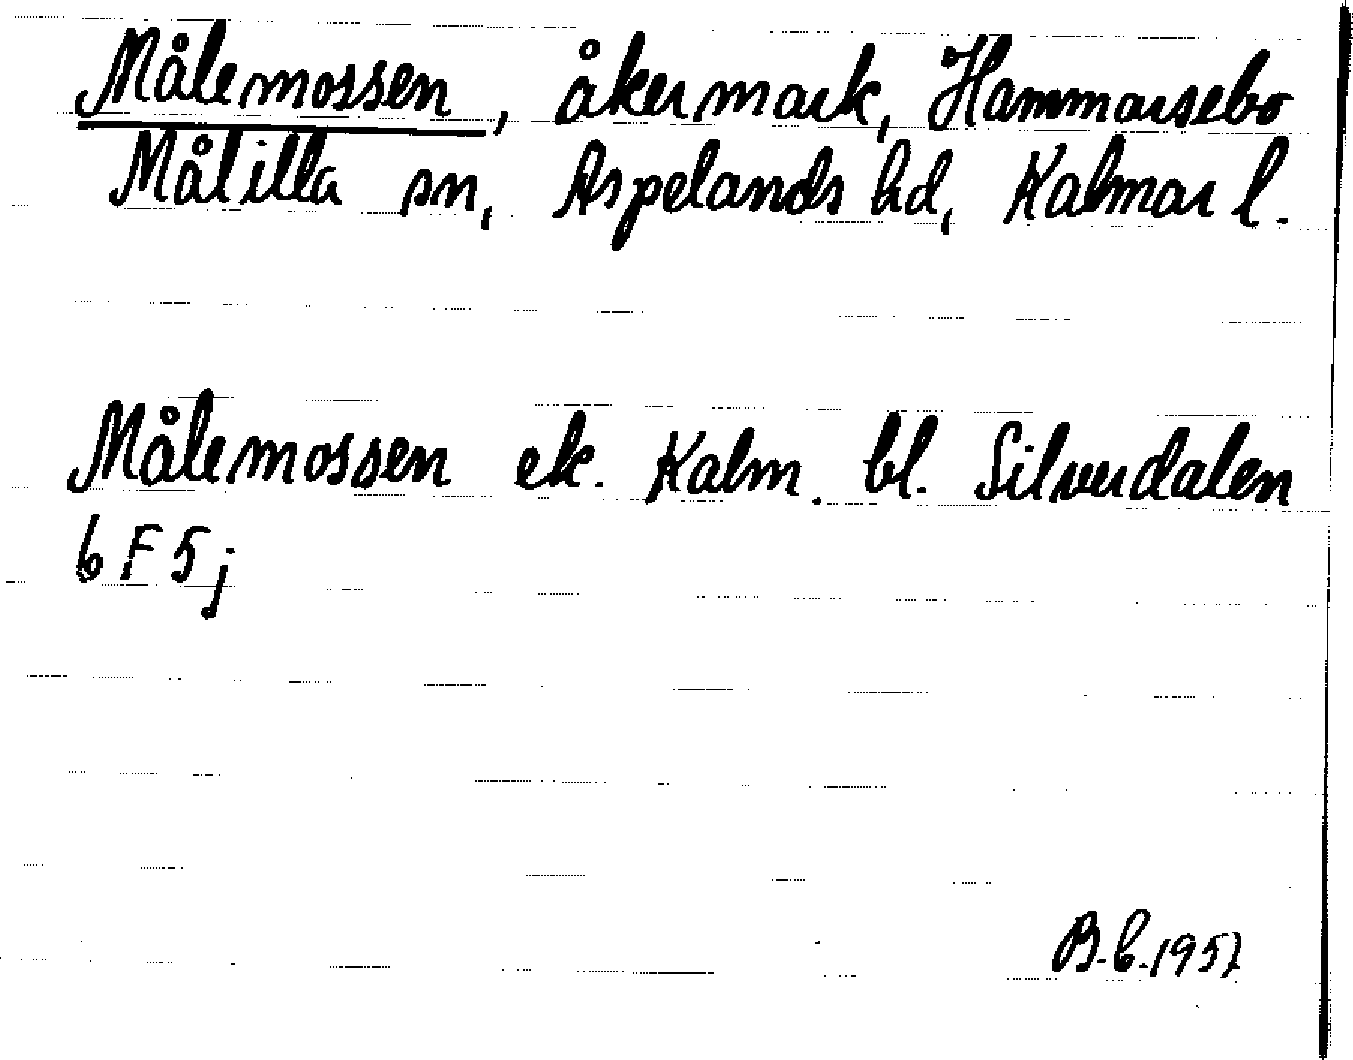 Målemossen, åkermark, Hammarsebo
Målilla sn, Aspelands hd, Kalmar l.
Målemossen ek. Kalm. bl. Silverdalen
6 F 5 j
B-b. 1957